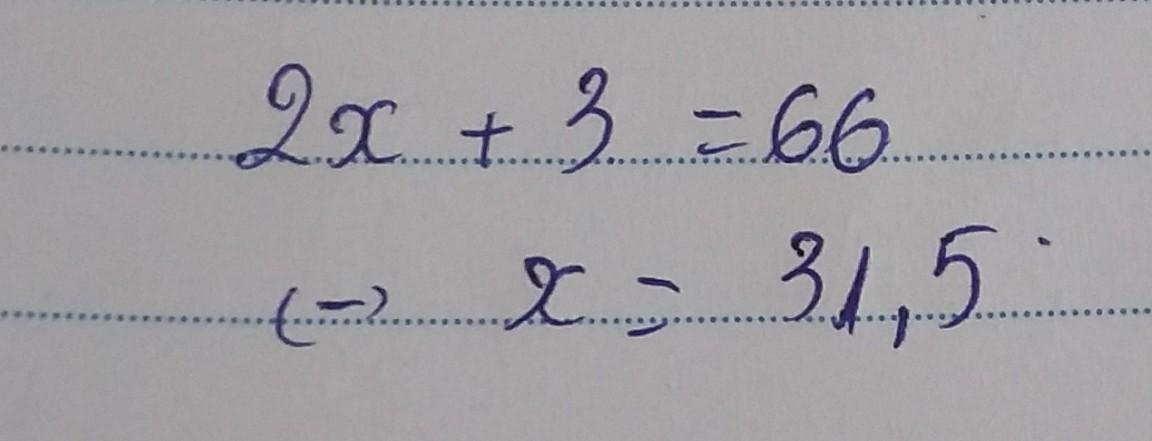 2x + 3 = 66
(-) x = 31,5